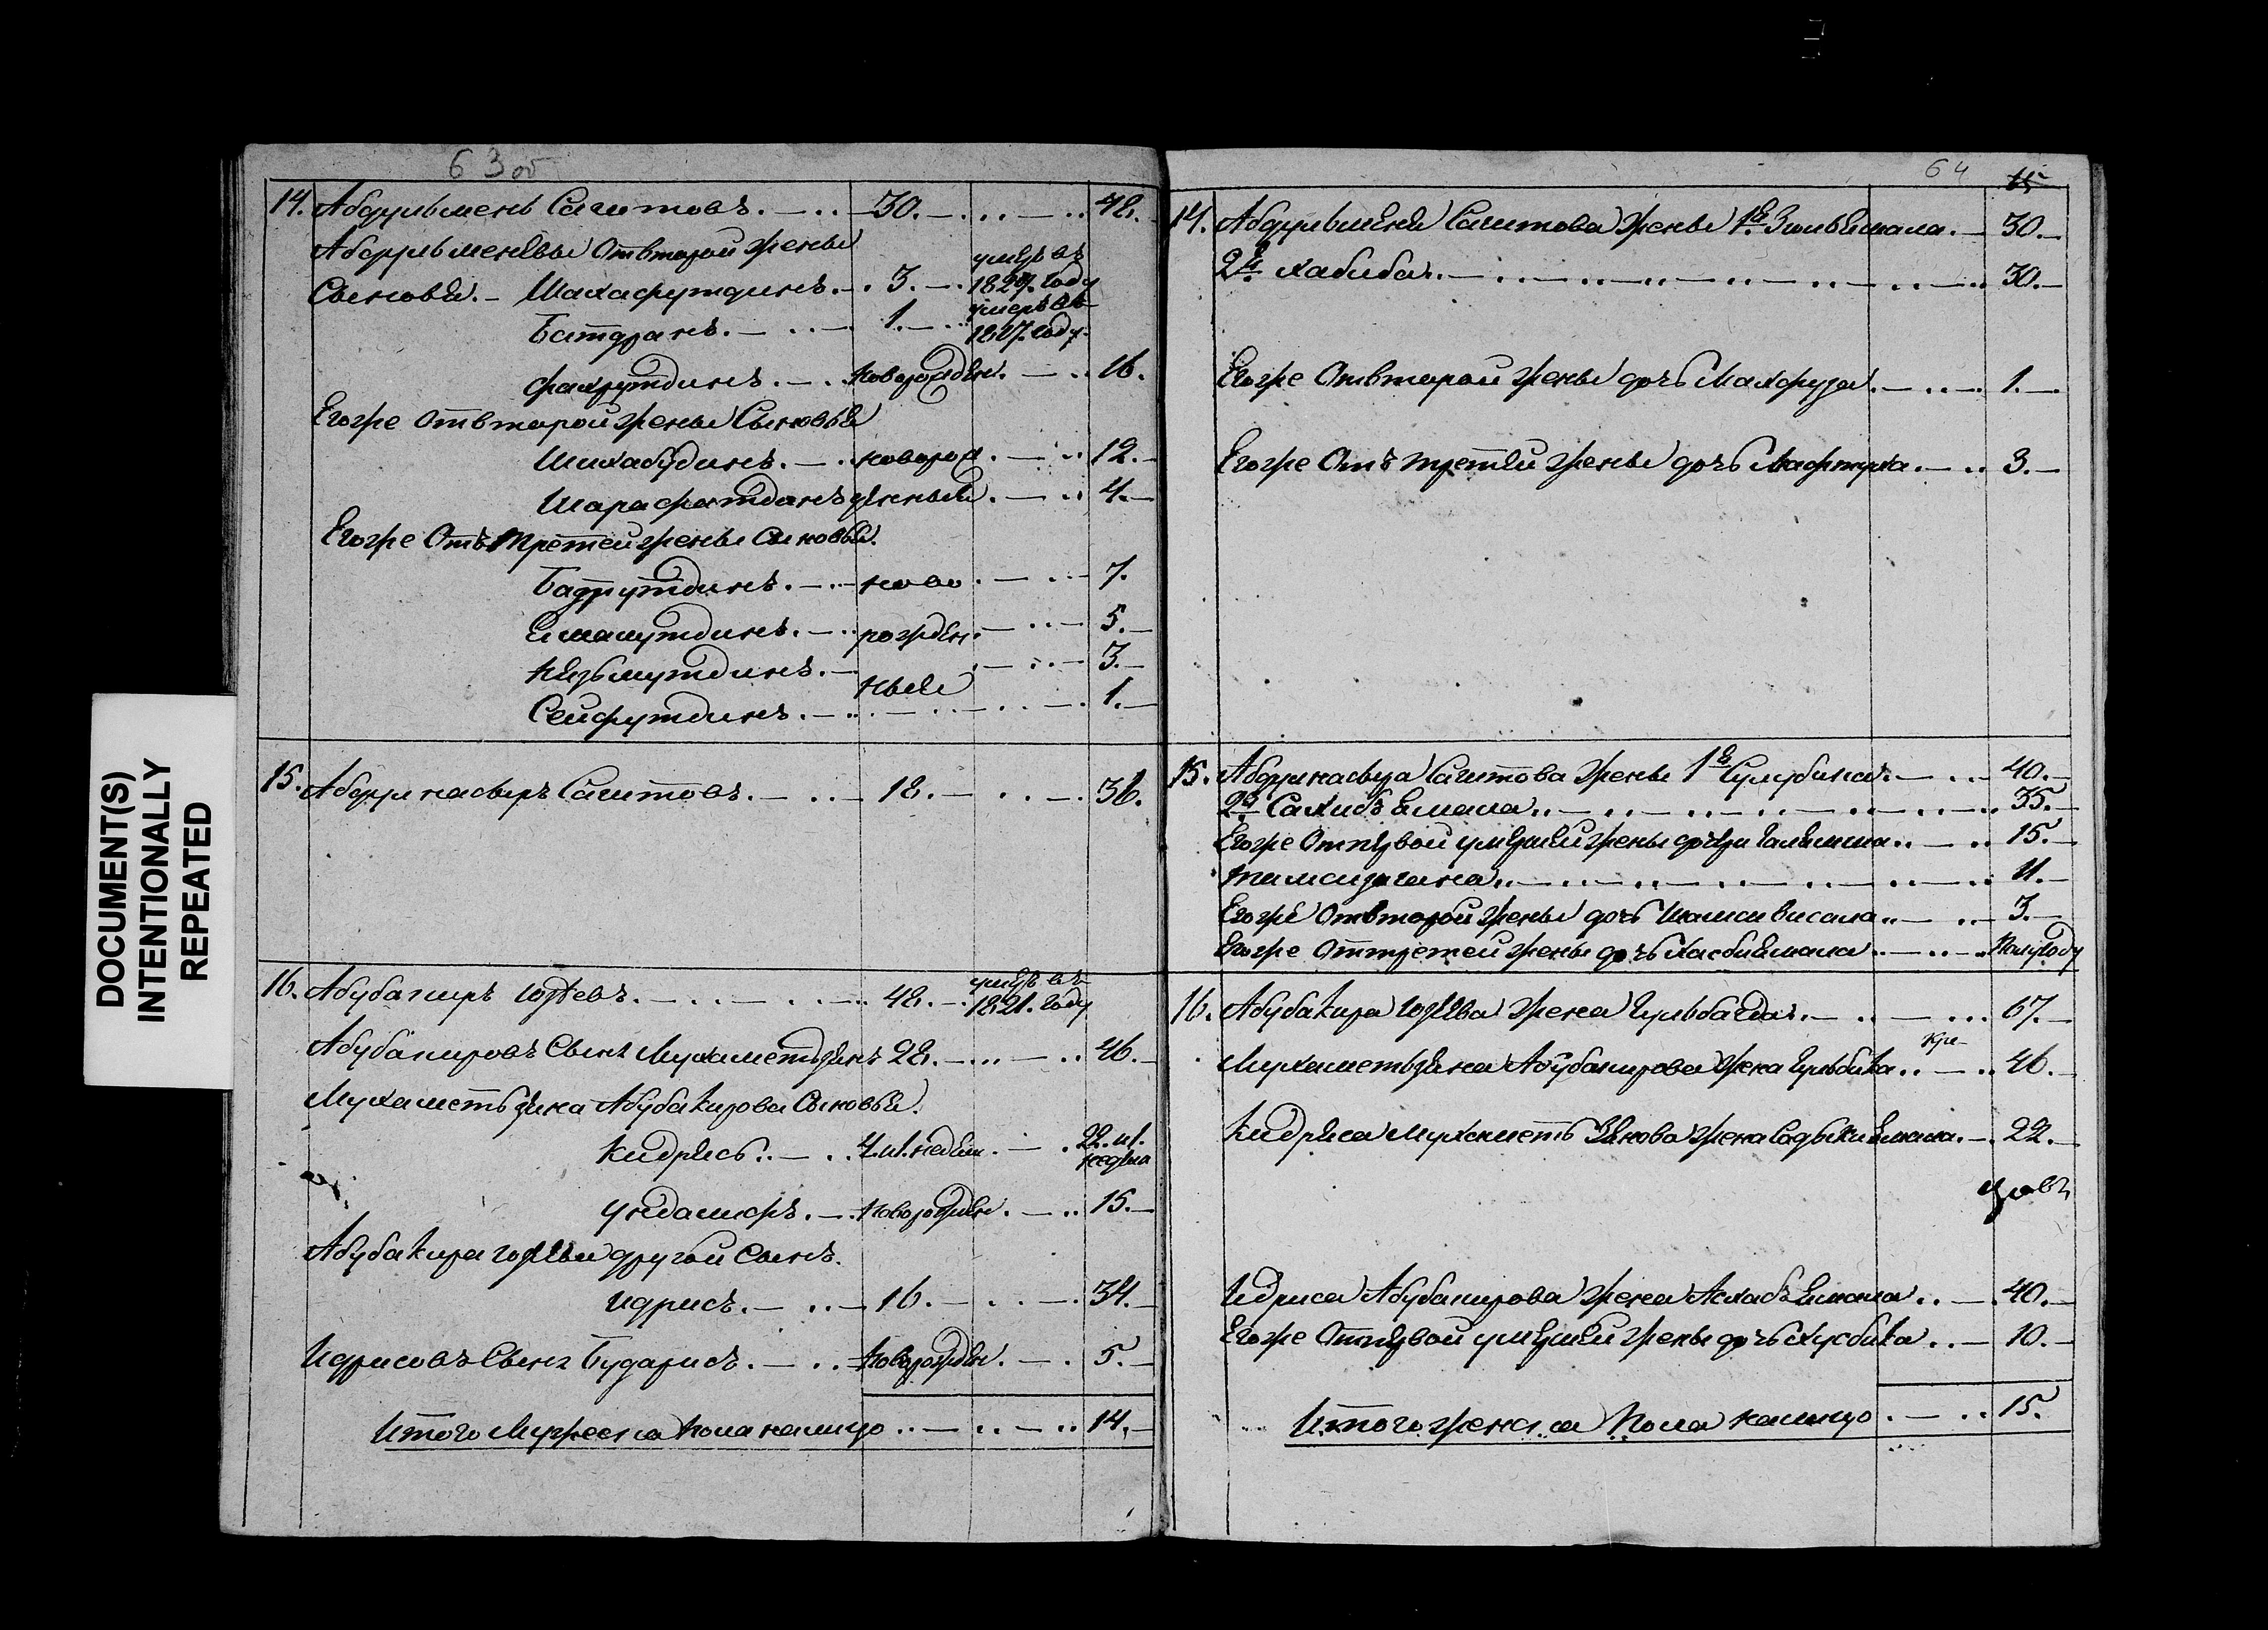 DOCUMENT(S)
INTENTIONALLY
REPEATED
63 об
14. Абдульмень Сагитовъ. 30. 48.
Абдульменевы От второй жены
Сыновья. Шахафутдинъ. 3. умеръ въ 1829. году
Батдранъ. 1. умеръ въ 1827. году
Фахрутдинъ. новорожден. 16.
Егоже От второй жены Сыновья
Шихабудинъ. новорож 12.
Шарафатдинъ денныя 4.
Егоже Отъ третей жены Сыновья.
Бадрутдинъ. ново 7.
Имамутдинъ. рожден. 5.
Незьмутдинъ. 3.
ныя
Сейфутдинъ. 1.
15. Абдулнасыръ Сагитовъ. 18. 36.
16. Абубакиръ 48. умеръ въ 1821. году
Абубакировъ Сынъ Мухаметьзянъ 28. 46.
Мухаметьзяна Абубакирова Сыновья.
Кидрясъ. 4. и. недели. 22. и. неделя
новорожден. 15.
Абубакира другой Сынъ.
Идрисъ. 16. 34.
Идрисовъ Сынъ Бударисъ. Новорожден. 5.
Итого Мужеска пола налицо 14.
64
15
14. Абдульменя Сагитова жены 1я. Зюльбямала. 30.
2я. Хабиба. 30.
Егоже От второй жены дочь Махфуза. 1.
Егоже Отъ третей жены дочь Мафтуха. 3.
15. Абдулнасыра Сагитова жены 1я 40.
2я. Сахибъямала 35.
Егоже От первой умершей жены дочери 15.
11.
Егоже От второй жены дочь Шамсивисала 3.
Егоже От третей жены дочь Хасбиямала полугоду
16. Абубакира жена Гульбагда. 67.
Мухаметьзяна Абубакирова жена Гульбика 46.
Кидряса Мухаметь Зянова жена Садыкиямала. 22.
Идриса Абубакирова жена Асхабъямала 40.
Егоже От первой умершей жены дочь Хусбика 10.
Итого женска Пола налицо 15.